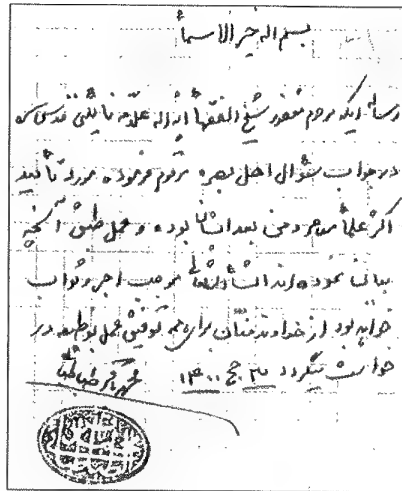 بسم الله خير الاسماء
رساله ایکه مرحوم مغفور شیخ الفقهاء آیة الله علامه نائینی قدس سره
در جواب سئوال اهل بصره مرقوم فرموده مورد تأیید
اکثر علماء موجود من بعد ایشان بوده و عمل طبق آنچه
بیان نموده اند انشاء الله تعالی موجب اجر و ثواب
خواهد بود از خداوند منان برای همه توفیق عمل بوظیفه در
خواست میگردد ۳ حج ۱۴۰۰ محمد باقر طباطبائی